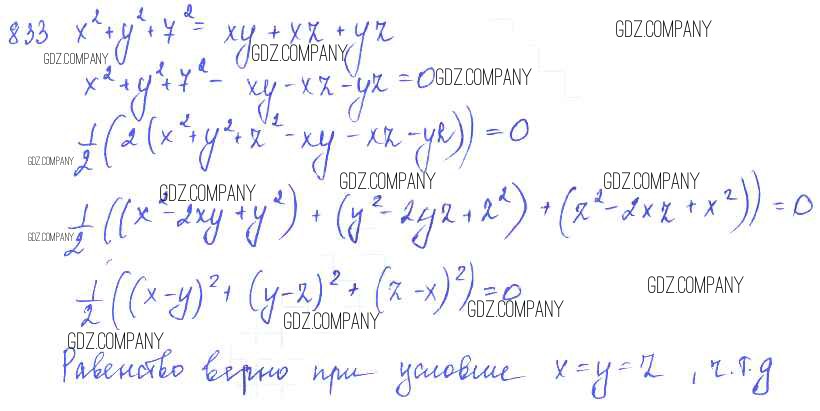 833 x² + y² + 7² = xy + xz + yz
GDZ.COMPANY
GDZ.COMPANY
GDZ.COMPANY
x² + y² + 7² - xy - xz - yz = 0
GDZ.COMPANY
1/2 (2 (x² + y² + z² - xy - xz - yz)) = 0
GDZ.COMPANY
GDZ.COMPANY
GDZ.COMPANY
GDZ.COMPANY
1/2 ((x² - 2xy + y²) + (y² - 2yz + z²) + (z² - 2xz + x²)) = 0
GDZ.COMPANY
1/2 ((x - y)² + (y - z)² + (z - x)²) = 0
GDZ.COMPANY
GDZ.COMPANY
GDZ.COMPANY
GDZ.COMPANY
Равенство верно при условие x = y = z , ч.т.д